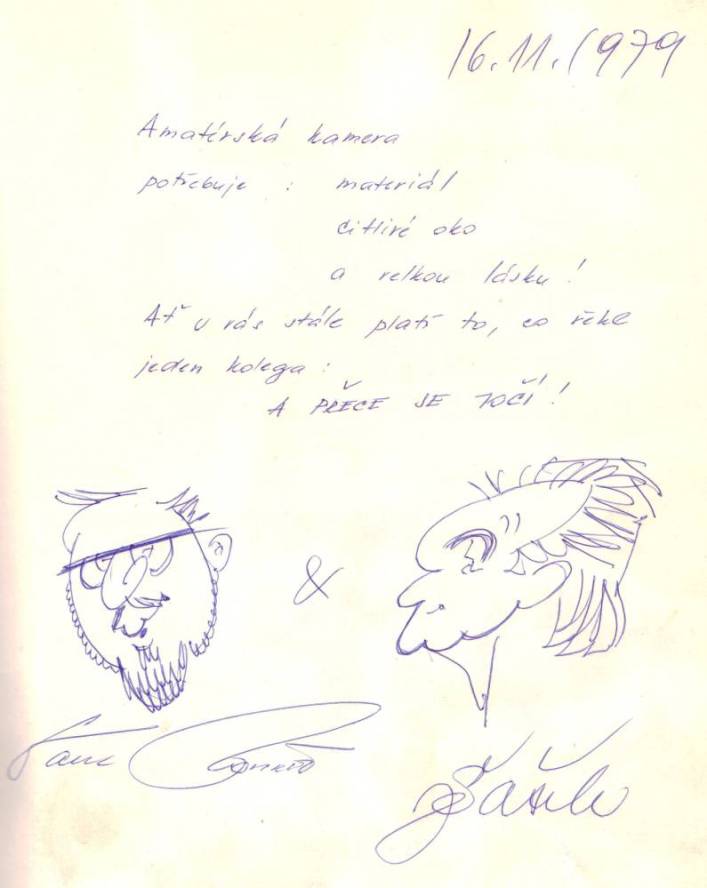 16.11.1979
Amatérská kamera
potřebuje : materiál
citlivé oko
a velkou lásku!
Ať u vás stále platí to, co řekl
jeden kolega:
A PŘECE SE TOČÍ!
&